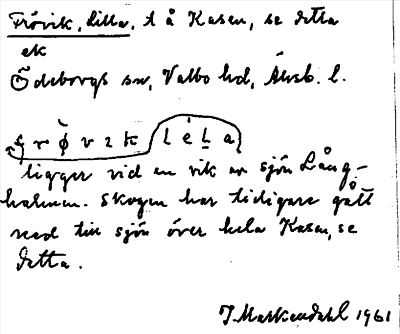 Frövik, Lilla, t å Kasen, se detta
ek
Ödeborgs sn, Valbo hd, Älvsb. l.
frøvɩk lela
ligger vid en vik av sjön Lång-
halmen. Skogen har tidigare gått
ned till sjön över hela Kasen, se
detta.
J Markendahl 1961